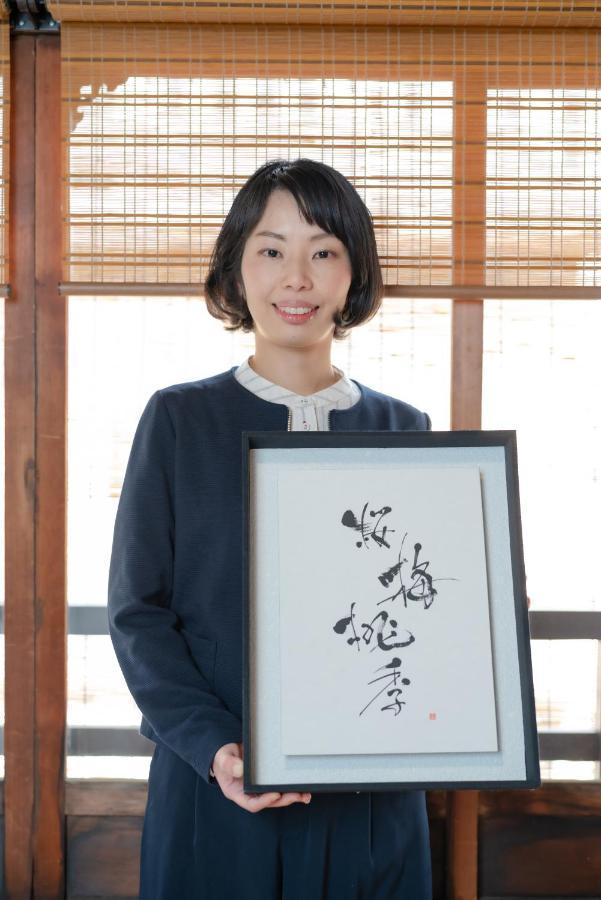 桜
梅
桃
李